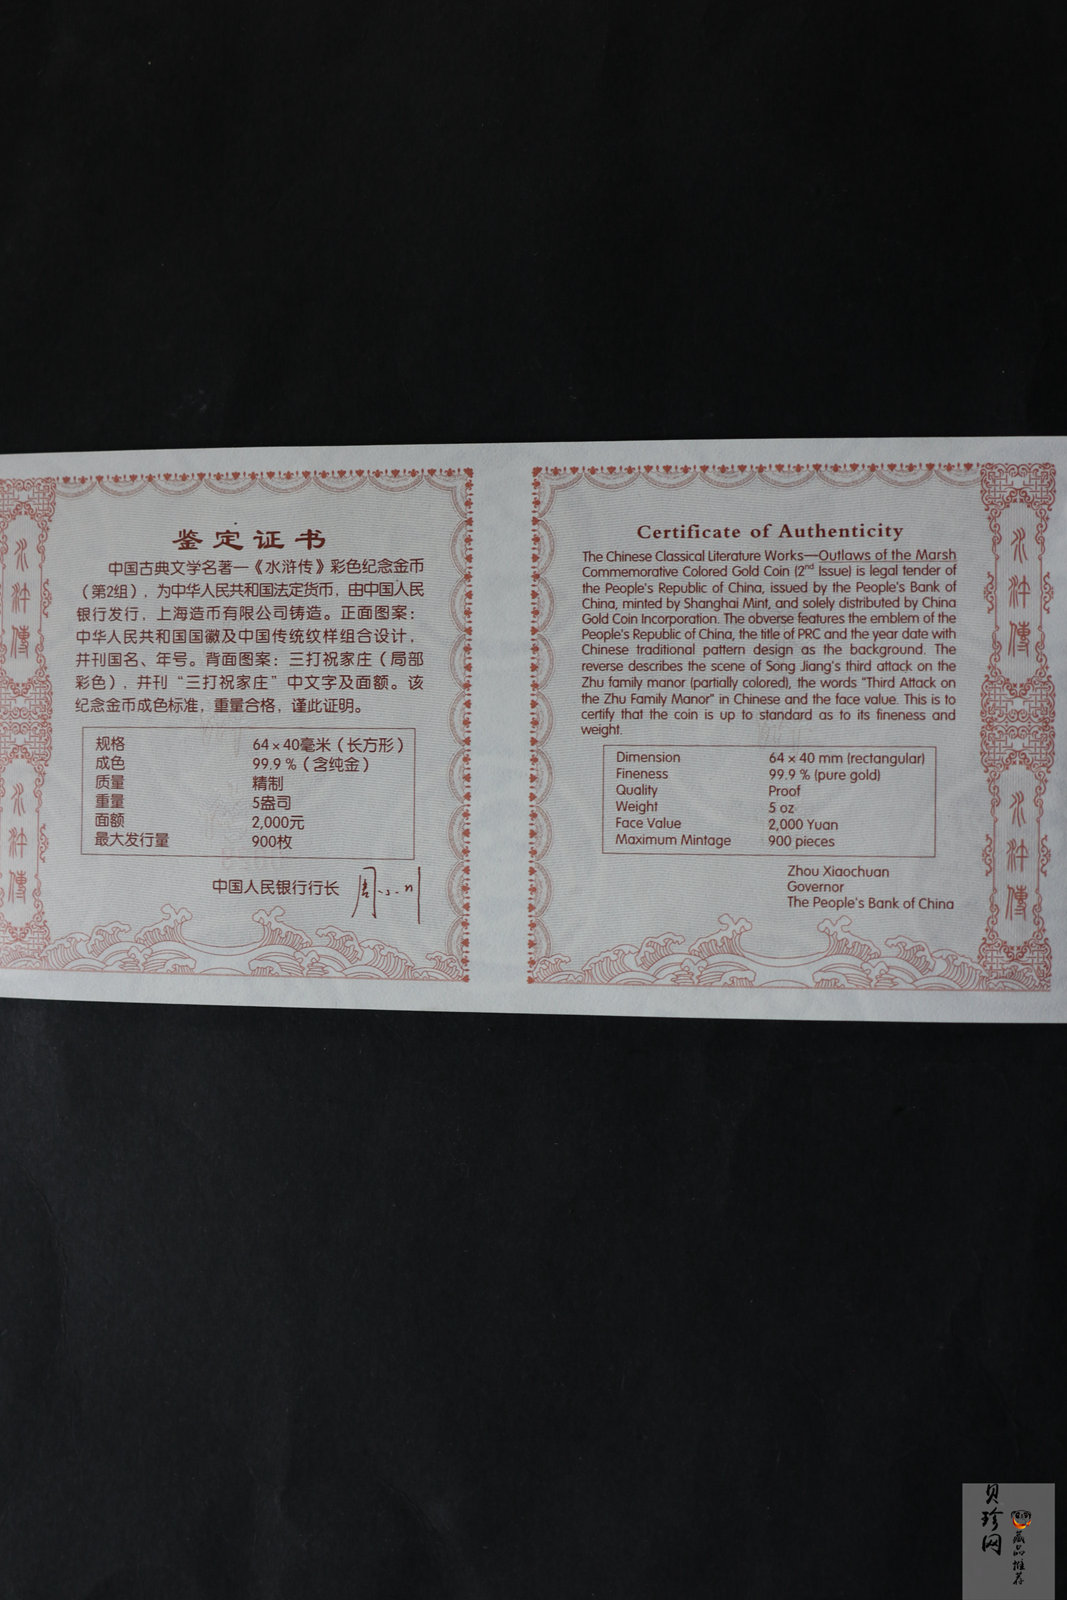 鉴定证书
中国古典文学名著—《水浒传》彩色纪念金币
（第2组），为中华人民共和国法定货币，由中国人民
银行发行，上海造币有限公司铸造。正面图案：
中华人民共和国国徽及中国传统纹样组合设计，
并刊国名、年号。背面图案：三打祝家庄（局部
彩色），并刊“三打祝家庄”中文字及面额。该
纪念金币成色标准，重量合格，谨此证明。
规格 64×40毫米（长方形）
成色 99.9％（含纯金）
质量 精制
重量 5盎司
面额 2,000元
最大发行量 900枚
中国人民银行行长 周小川
水浒傳
水浒傳
Certificate of Authenticity
The Chinese Classical Literature Works—Outlaws of the Marsh
Commemorative Colored Gold Coin (2nd Issue) is legal tender of
the People's Republic of China, issued by the People's Bank of
China, minted by Shanghai Mint, and solely distributed by China
Gold Coin Incorporation. The obverse features the emblem of the
People's Republic of China, the title of PRC and the year date with
Chinese traditional pattern design as the background. The
reverse describes the scene of Song Jiang's third attack on the
Zhu family manor (partially colored), the words "Third Attack on
the Zhu Family Manor" in Chinese and the face value. This is to
certify that the coin is up to standard as to its fineness and
weight.
Dimension 64×40 mm (rectangular)
Fineness 99.9 % (pure gold)
Quality Proof
Weight 5 oz
Face Value 2,000 Yuan
Maximum Mintage 900 pieces
Zhou Xiaochuan
Governor
The People's Bank of China
水浒傳
水浒傳
贝珍网
藏品推荐